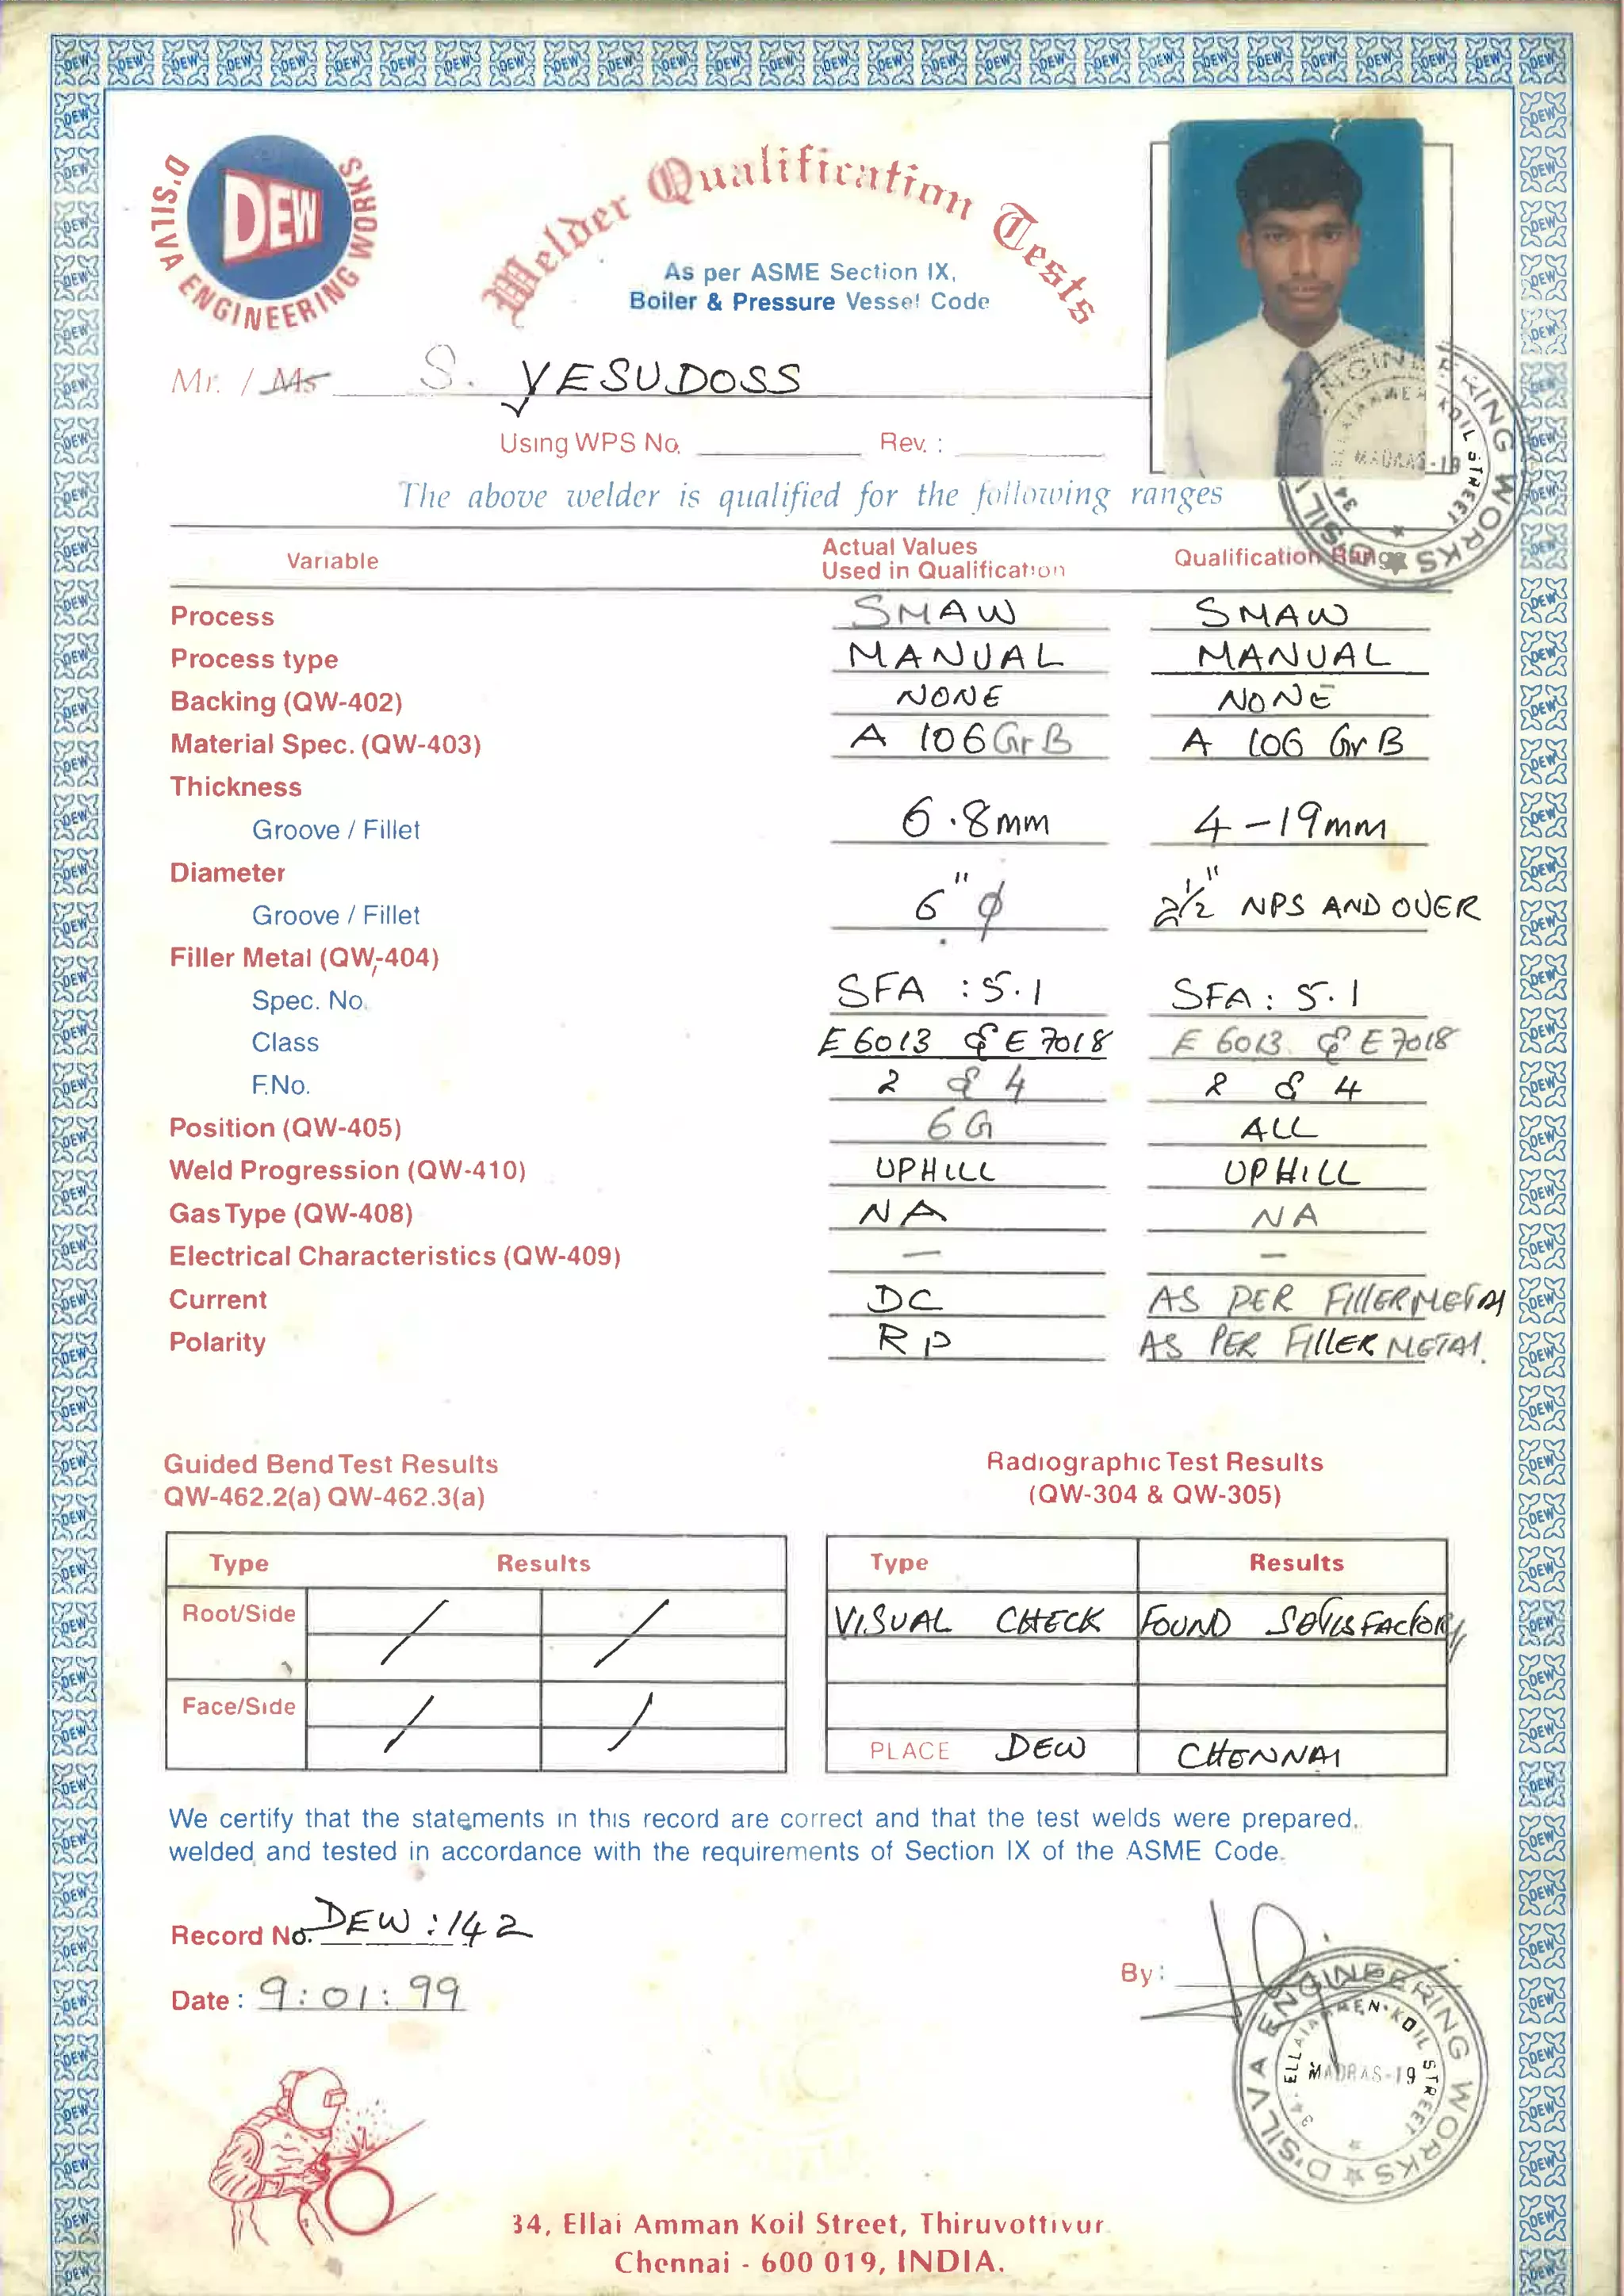 D'SILVA ENGINEERING WORKS
DEW
Welder Qualification Tests
As per ASME Section IX,
Boiler & Pressure Vessel Code
Mr. / Ms S. YESUDOSS
Using WPS No. Rev. :
The above welder is qualified for the following ranges
Variable Actual Values Used in Qualification Qualification Range
Process SMAW SMAW
Process type MANUAL MANUAL
Backing (QW-402) NONE NONE
Material Spec. (QW-403) A 106 Gr B A 106 Gr B
Thickness
Groove / Fillet 6.8mm 4-19mm
Diameter
Groove / Fillet 6" ϕ 2 1/2" NPS AND OVER
Filler Metal (QW-404)
Spec. No. SFA : 5.1 SFA : 5.1
Class E 6013 & E 7018 E 6013 & E 7018
F.No. 2 & 4 2 & 4
Position (QW-405) 6G ALL
Weld Progression (QW-410) UPHILL UPHILL
Gas Type (QW-408) NA NA
Electrical Characteristics (QW-409) — —
Current DC AS PER FILLER METAL
Polarity RP AS PER FILLER METAL.
Guided Bend Test Results
QW-462.2(a) QW-462.3(a)
Type Results
Root/Side / /
Face/Side / /
Radiographic Test Results
(QW-304 & QW-305)
Type Results
VISUAL CHECK FOUND SATISFACTORY
PLACE DEW CHENNAI
We certify that the statements in this record are correct and that the test welds were prepared,
welded and tested in accordance with the requirements of Section IX of the ASME Code.
Record No. DEW : 142
Date : 9:01:99
By :
D'SILVA ENGINEERING WORKS
34, ELLAIAMMEN KOIL STREET
MADRAS-19
34, Ellai Amman Koil Street, Thiruvottivur
Chennai - 600 019, INDIA.